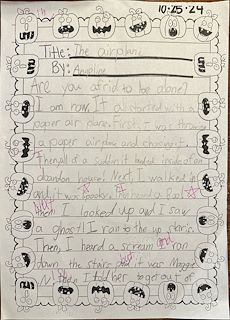 10-25-24
Title: The airplane
By: Angeline
Are you afrid to be alone?
I am now. It all started with a
paper air plane. First, I was throwing
a paper airplane and chasing it.
Then all of a sudden it landed inside of an
abandon house! Next I walked in
and it was spooky. I heard a Boo!
then I looked up and I saw
a ghost! I ran to the up stairs.
Then I heard a scream and ran
down the stairs and it was Maggie
N then I told her to get out of